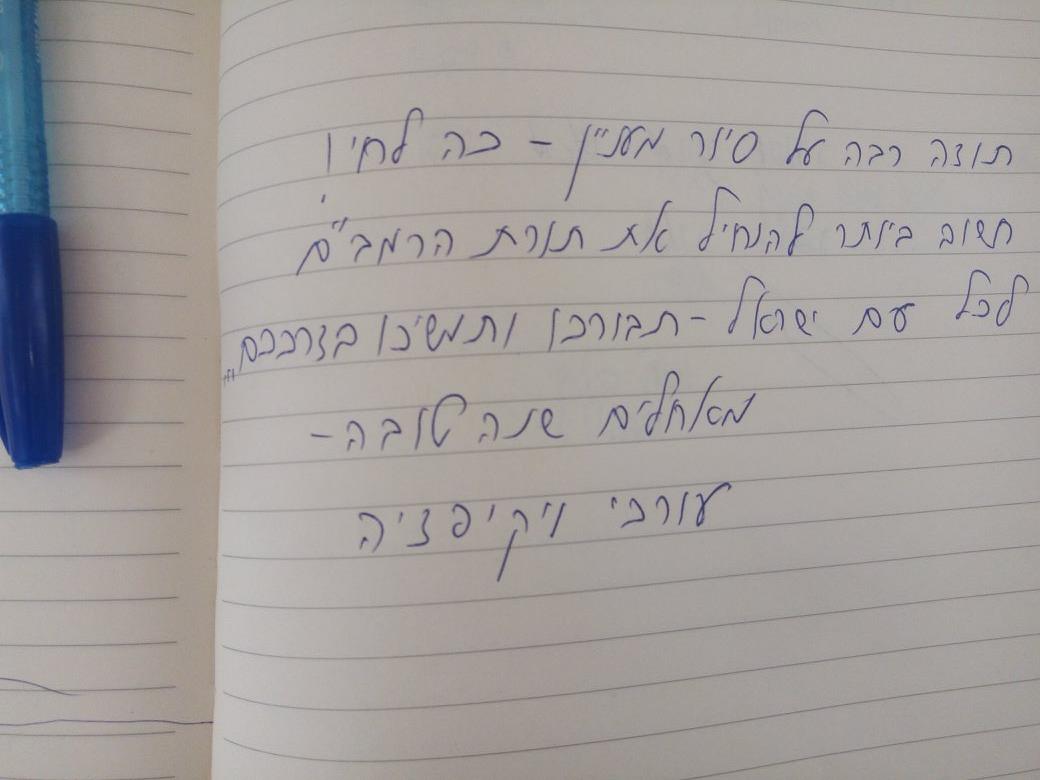 תודה רבה על סיור מעניין - כה לחי!
חשוב ביותר להנחיל את תורת הרמב"ם
לכל עם ישראל - תבורכו ותמשיכו בדרככם...
מאחלים שנה טובה -
עורכי ויקיפדיה